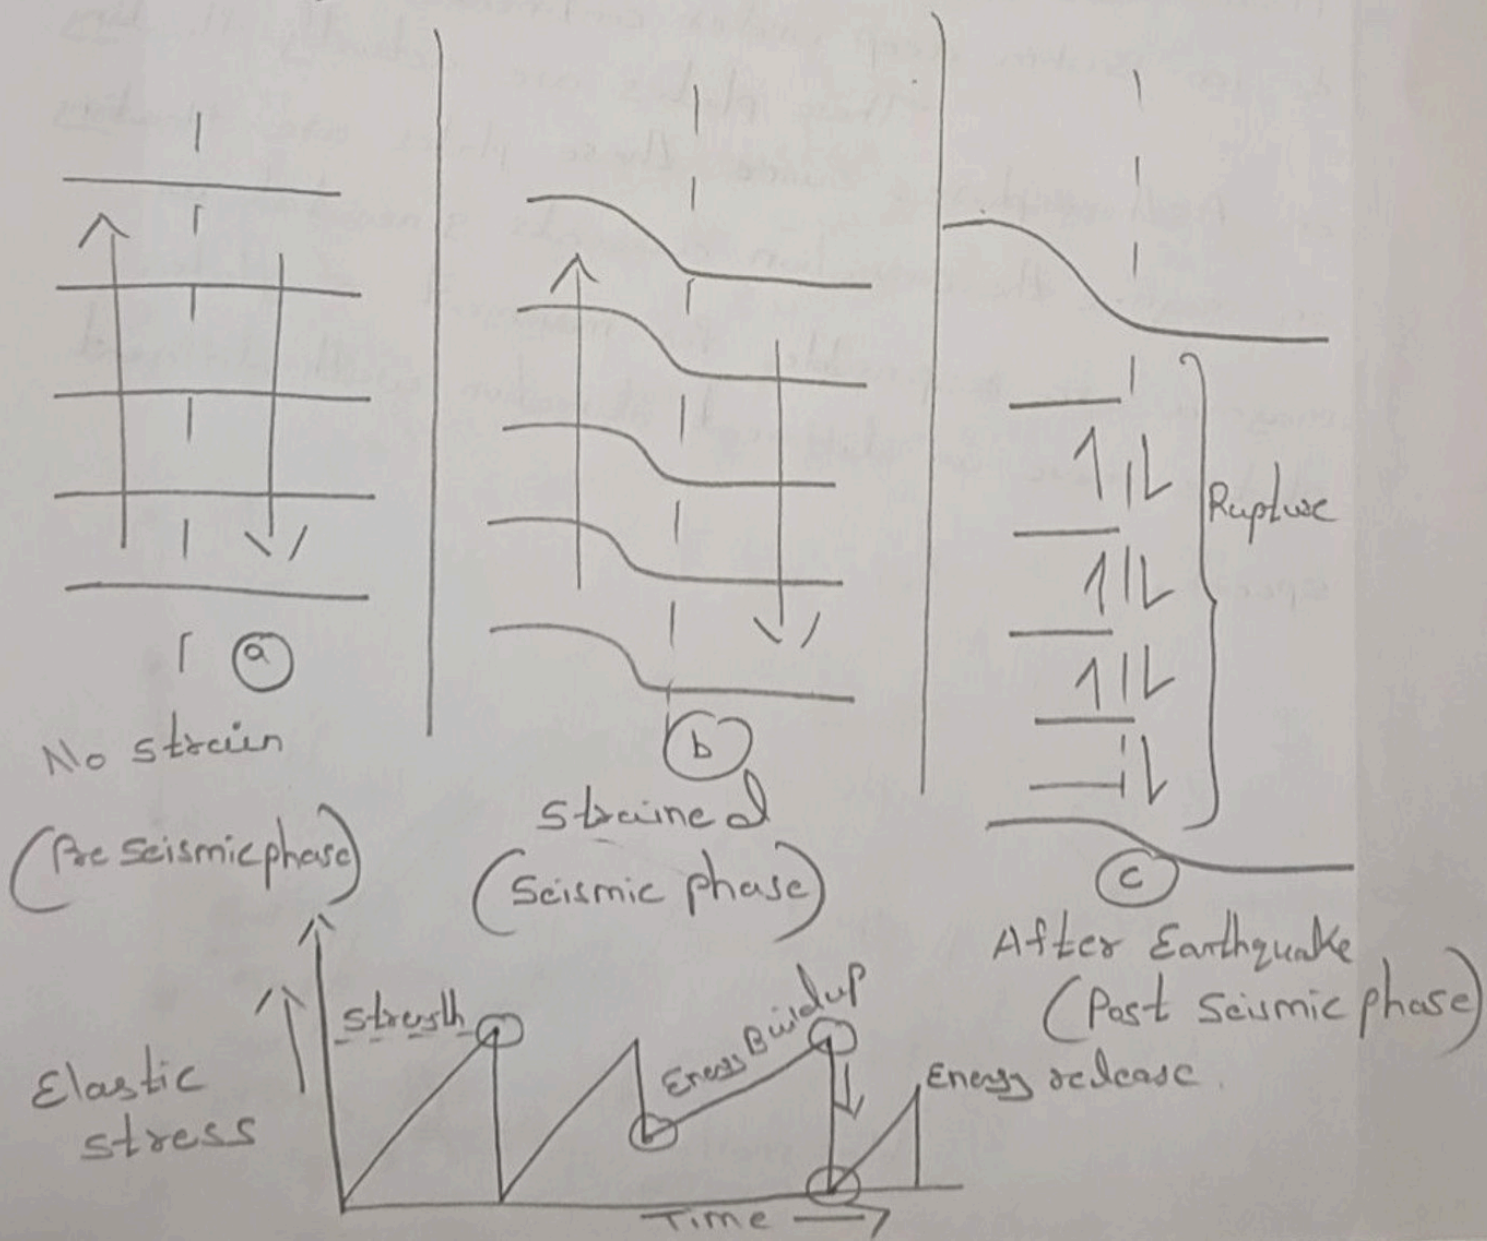 a
No strain
(Pre seismic phase)
b
Strained
(Seismic phase)
Rupture
c
After Earthquake
(Post Seismic phase)
Elastic
stress
Energy Buildup
Energy release.
Time